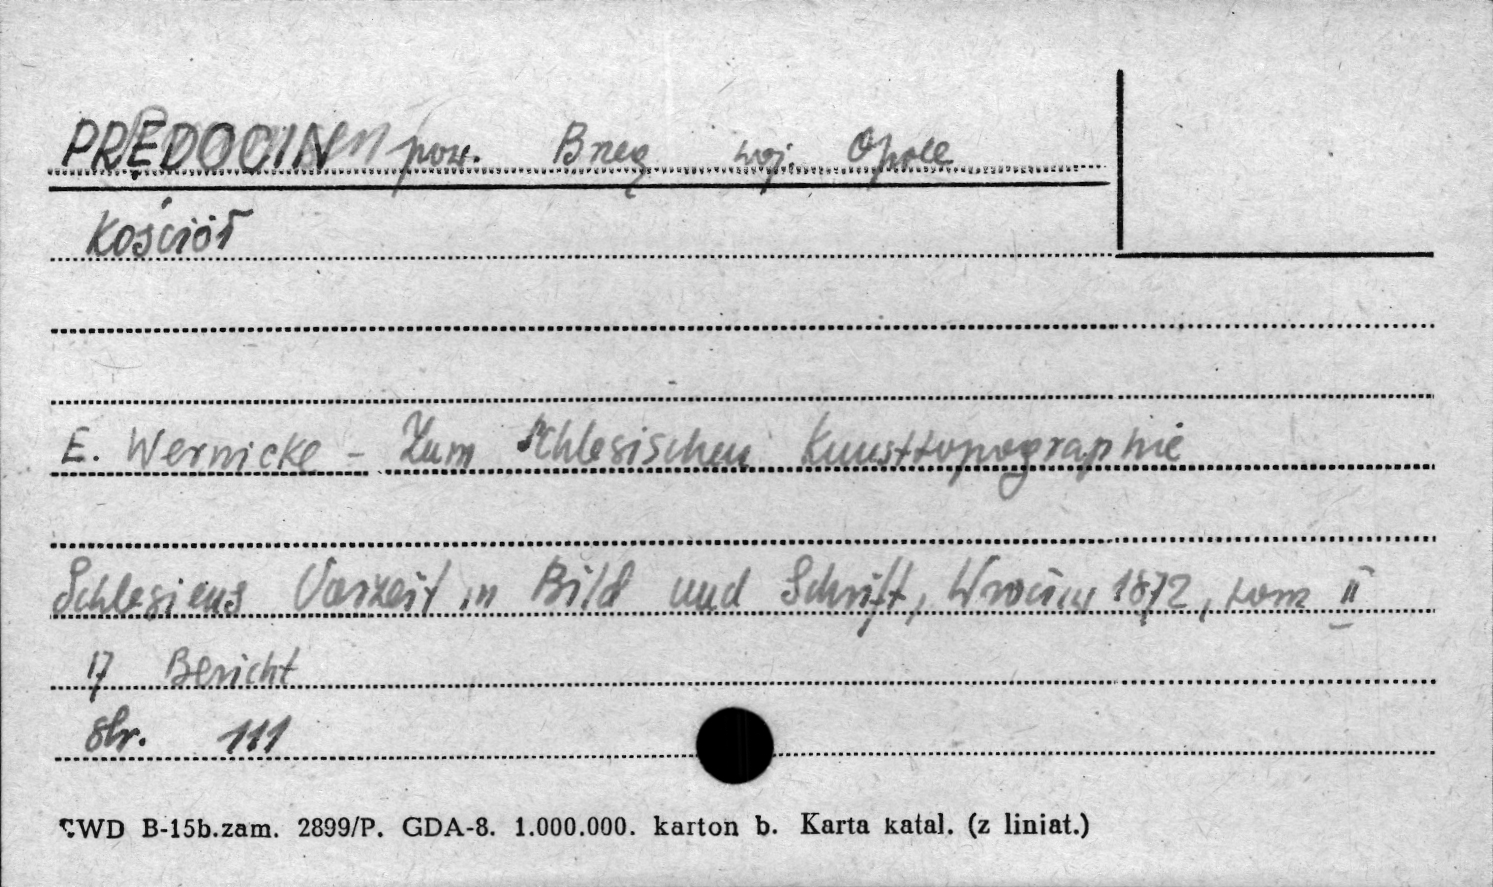 PRĘDOCIN pow. Brzeg woj. Opole
Kościół
E. Wernicke - Zum Schlesischen Kunsttopographie
Schlesiens Vorzeit in Bild und Schrift, Wrocław 1872, tom II
17 Bericht
str. 111
CWD B-15b.zam. 2899/P. GDA-8. 1.000.000. karton b. Karta katal. (z liniat.)